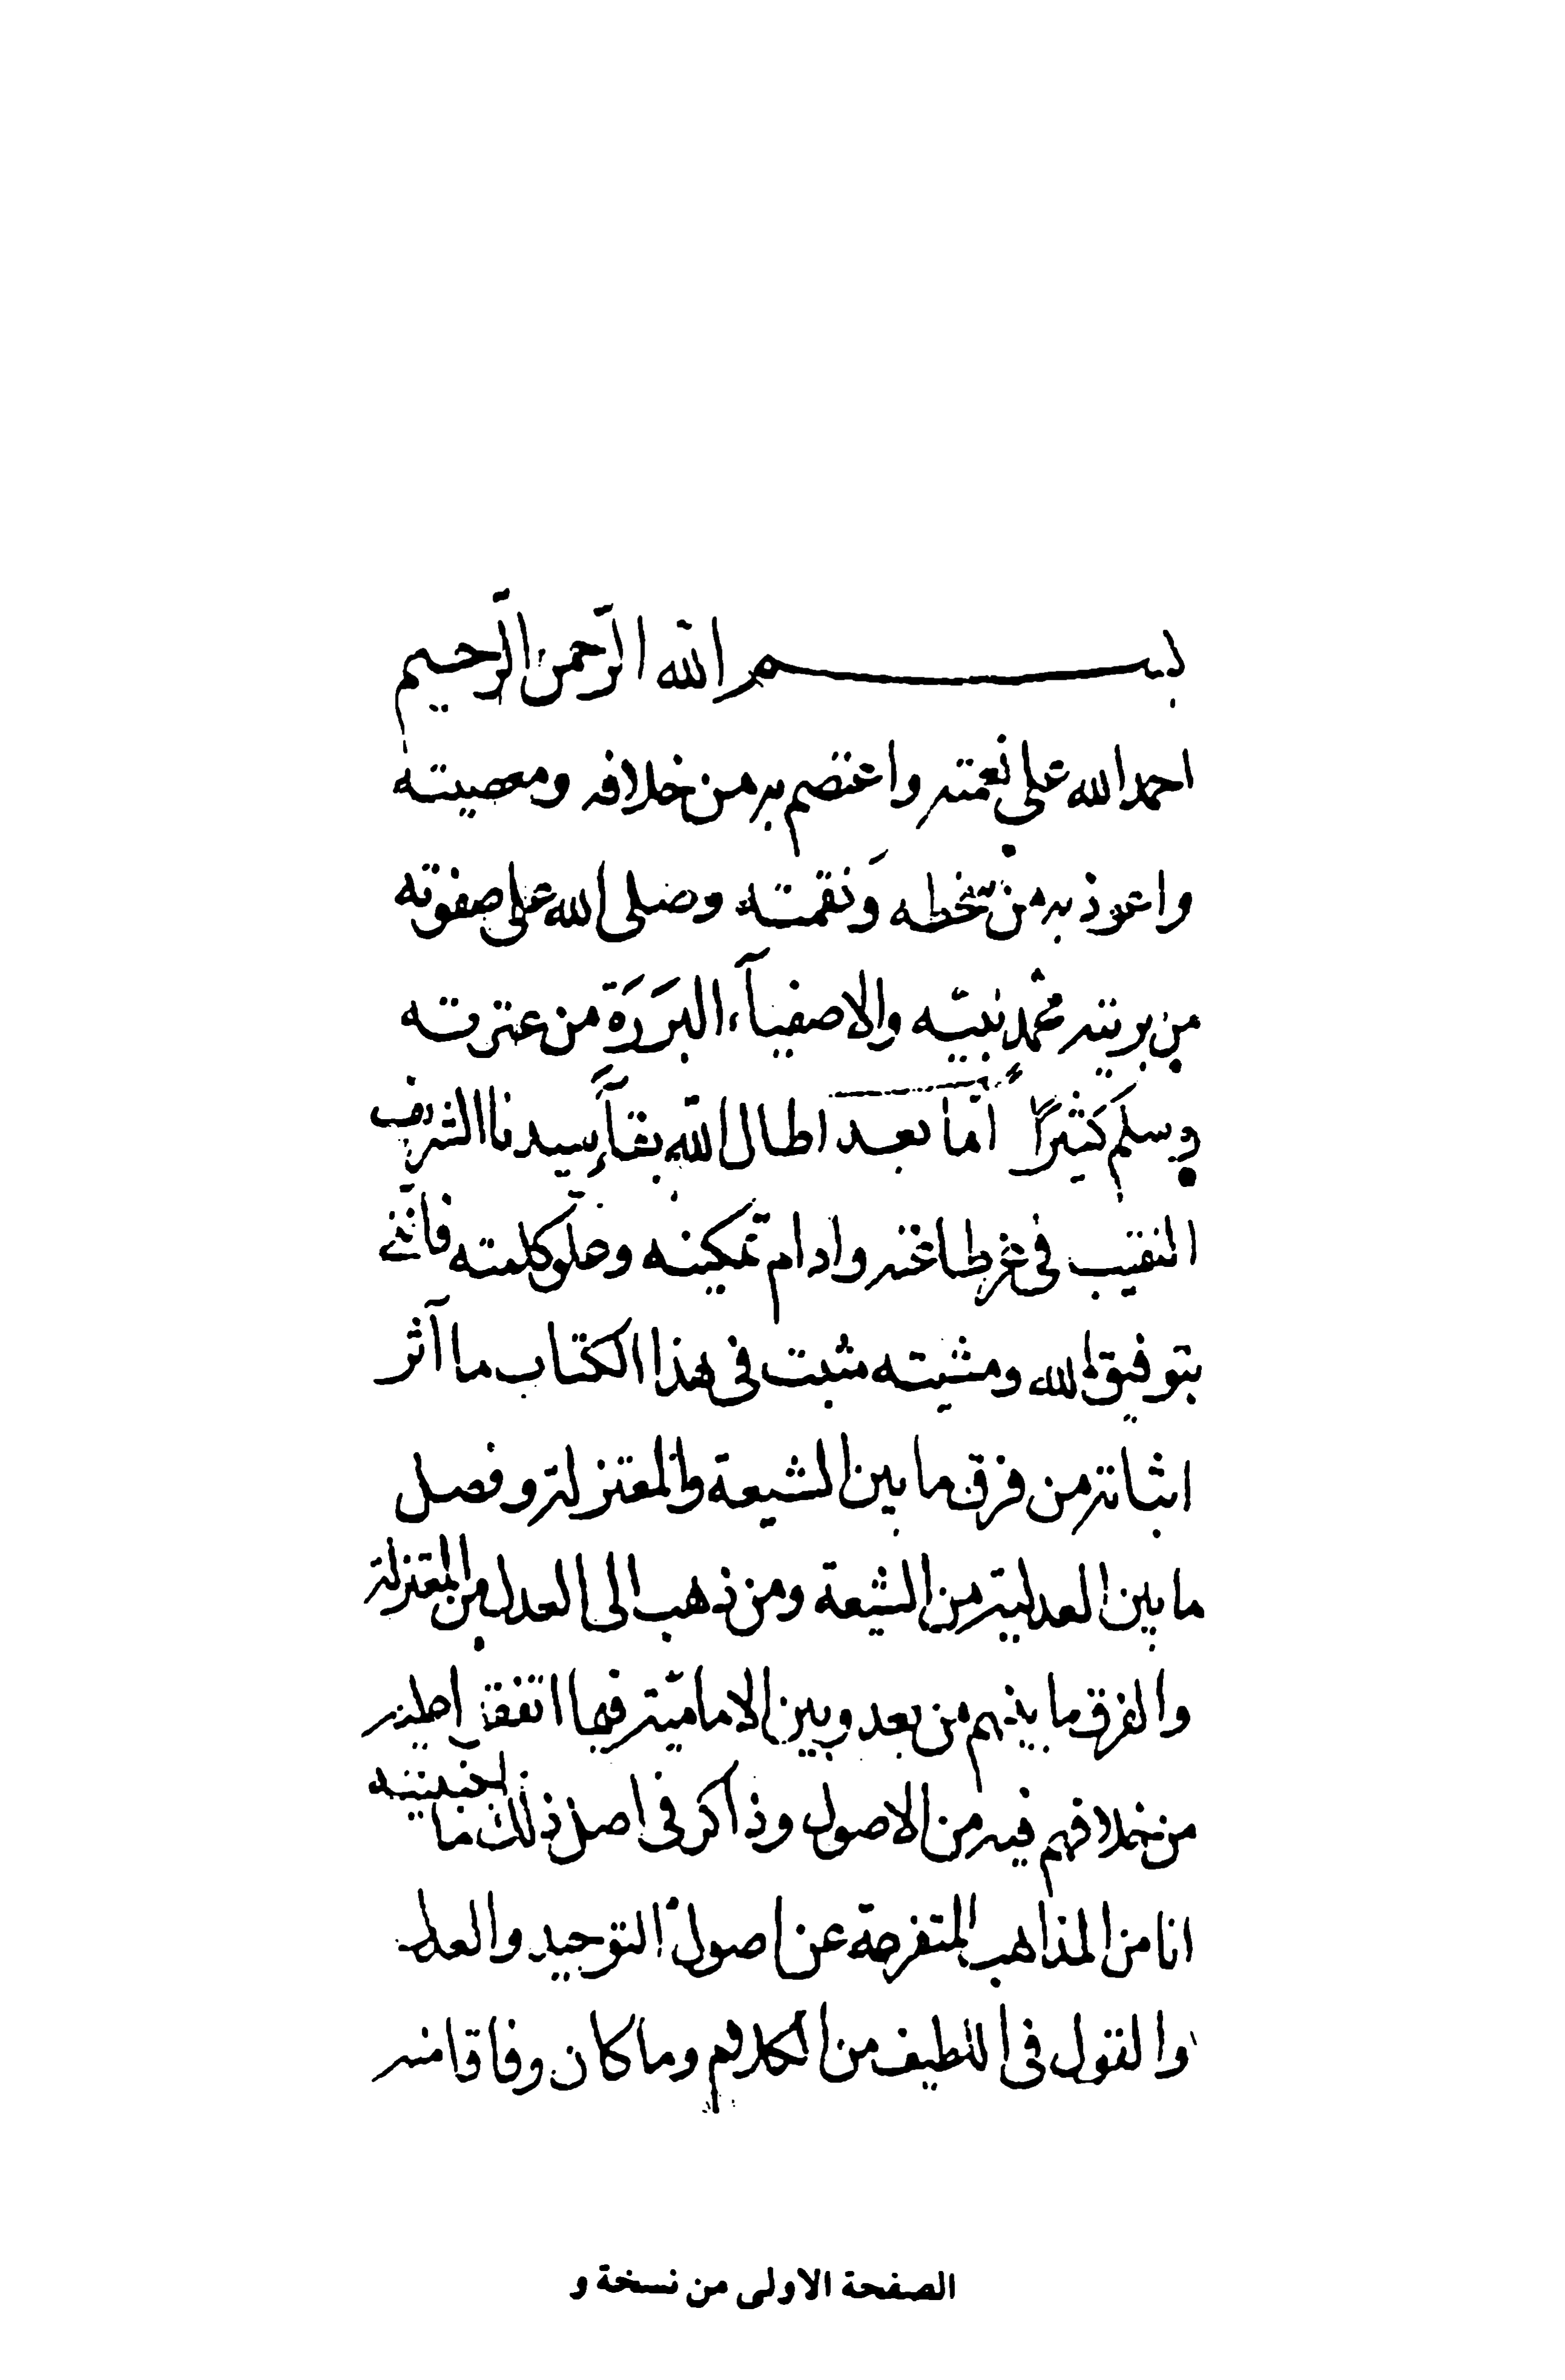 بسم الله الرحمن الرحيم
احمد الله على نعمته واعتصم به من خلافه ومعصيته
واعوذ به من سخطه وَنقمته وصلى الله على صفوته
من بريته محمّد نبيّه والاصفيآء البَرَرَة من عترته
وسلم كَثيرًا امّا بعد اطال الله بقآء سيدنا الشريف
النقيب في عز طاعته وادام تمكينه وعلو كلمته فانّي
بتوفيق الله ومشيته مثبت في هذا الكتاب ما آثر
اثباته من فرق ما بين الشيعة والمعتزلة وفصل
ما بين العدلية من الشيعة ومن ذهب الى العدل من المعتزلة
والفرق ما بينهم من بعد وبين الاماميّة فيما اتفقوا عليه
من خلافهم فيه من الاصول وذاكر في اصل ذلك ما اجتبيته
انا من المذاهب المتفرعة عن اصول التوحيد والعدل
والقول في اللطيف من الكلام وما كان وفاقا منه
الصفحة الاولى من نسخة و